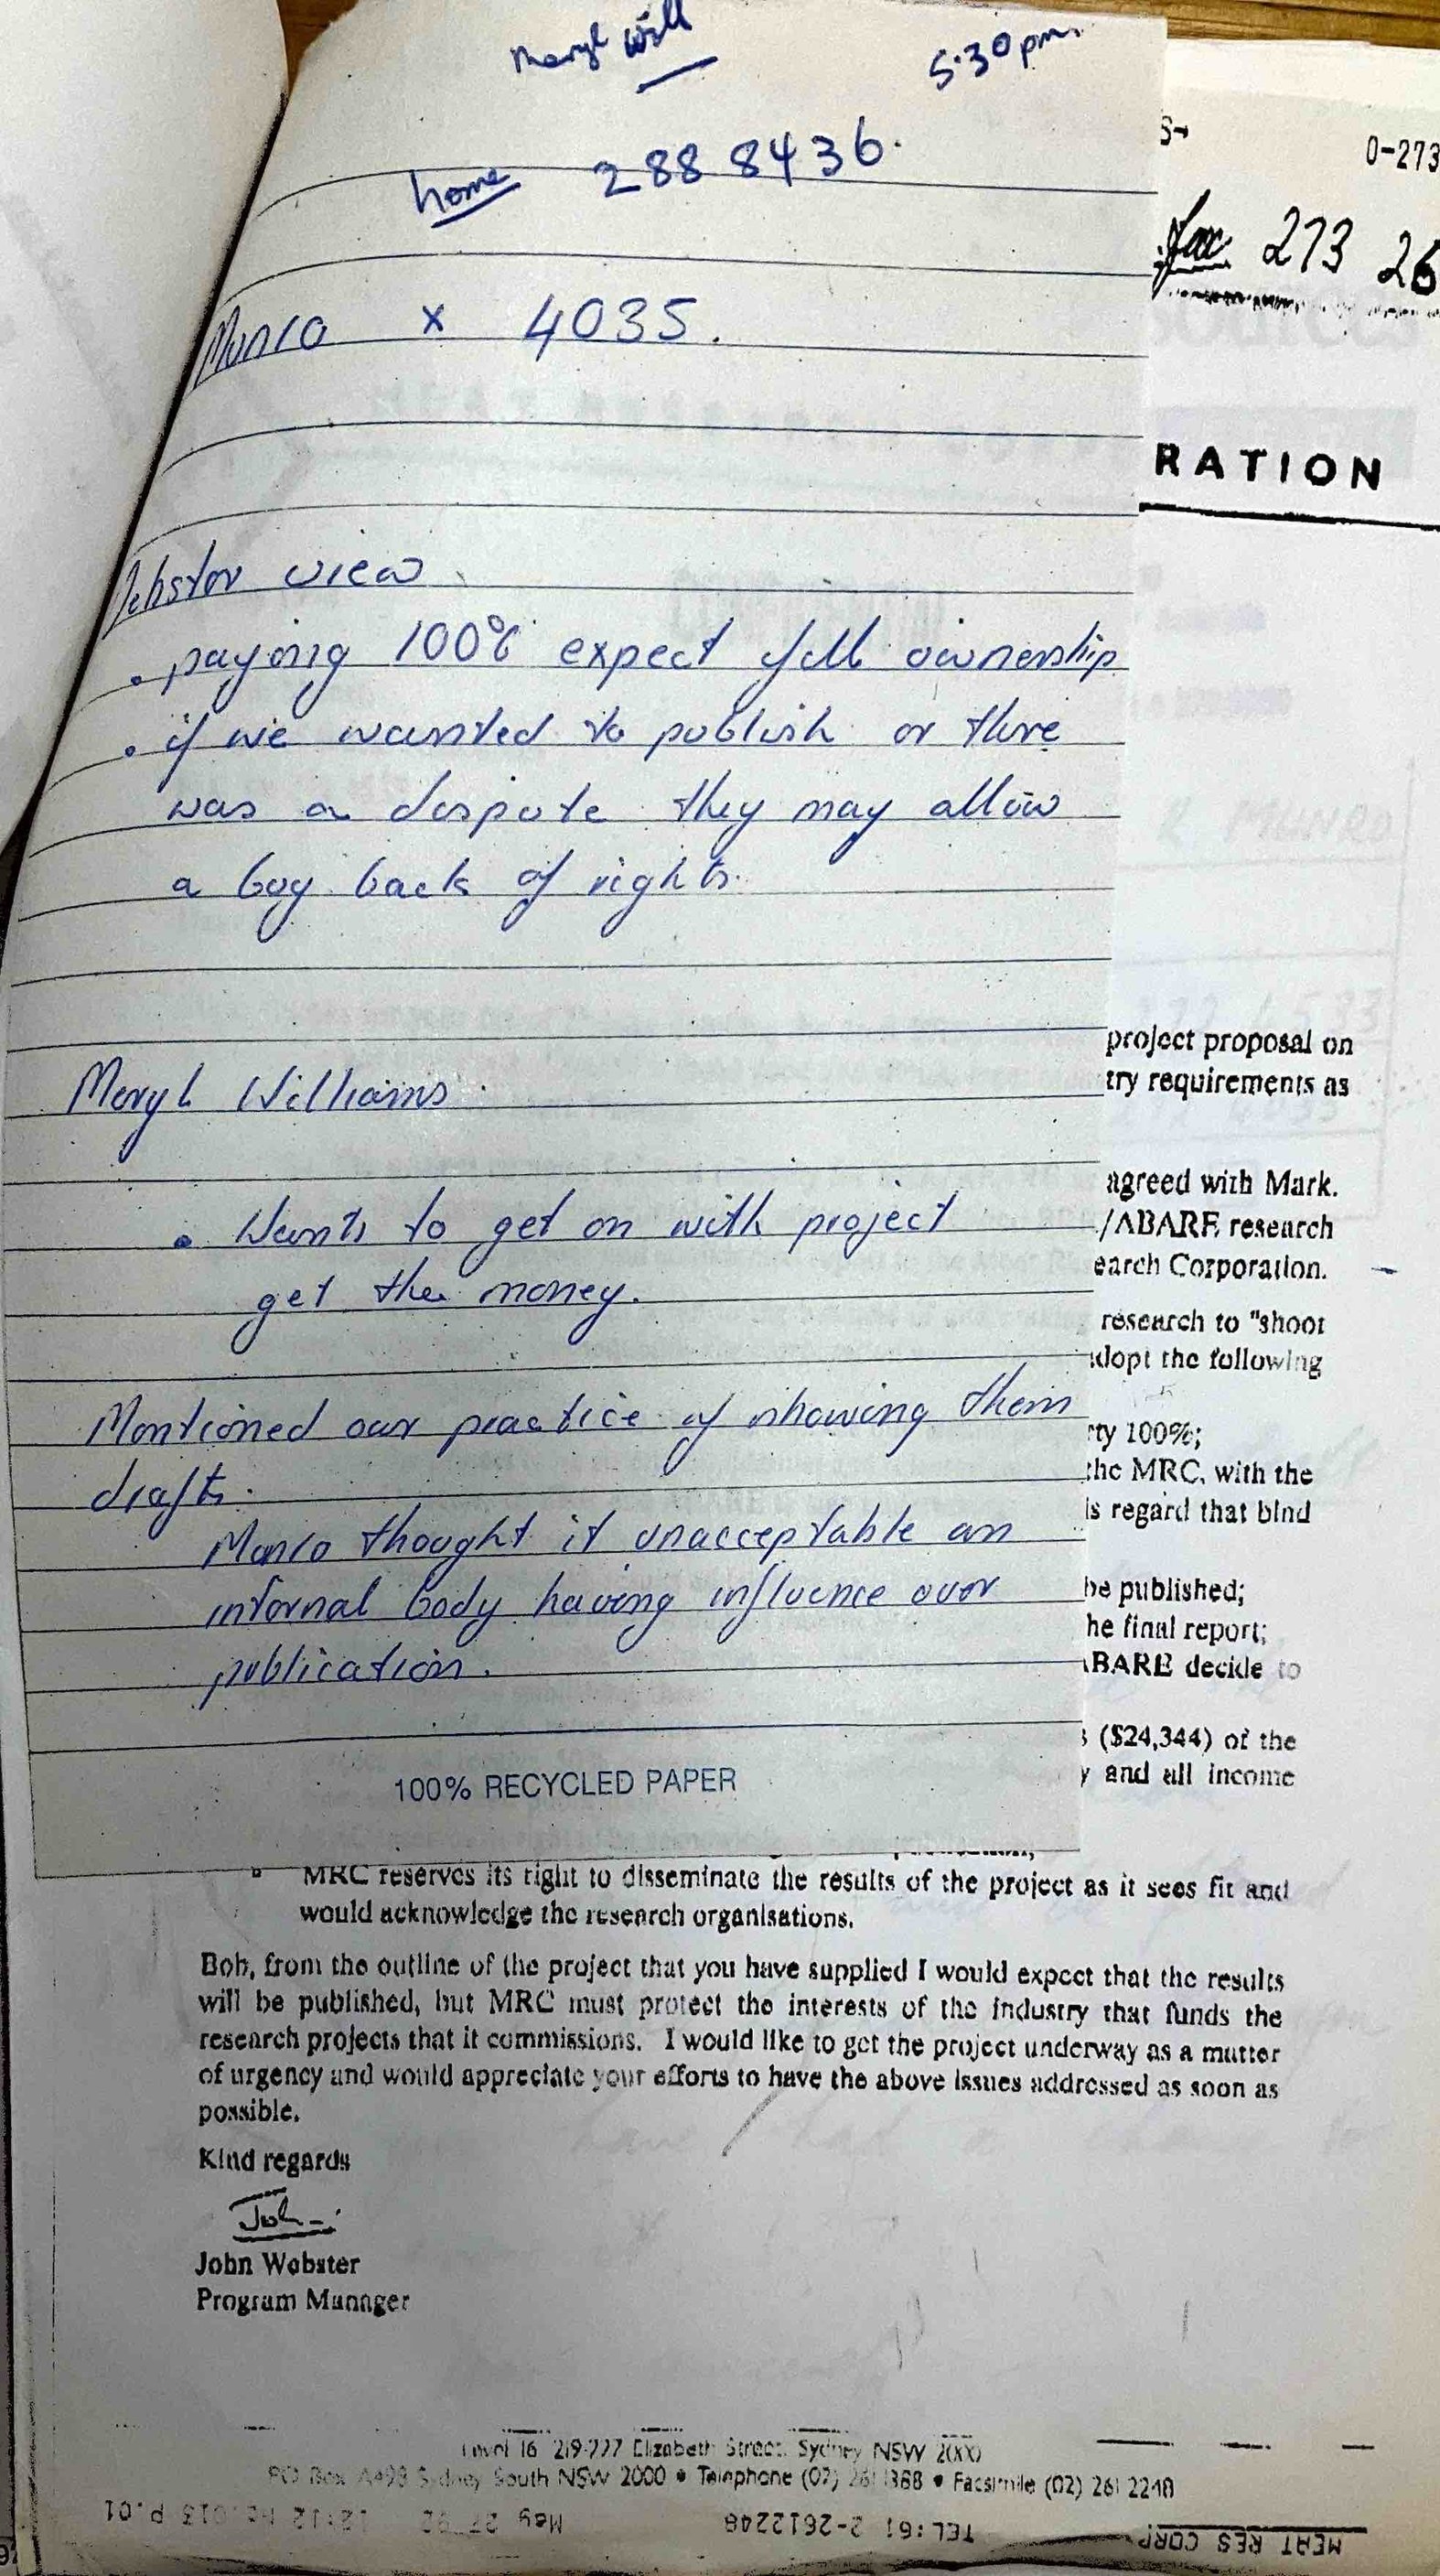 Meryl Will 5.30 pm.
home 288 8436.
Munro x 4035.
Webster view
. paying 100% expect full ownership
. if we wanted to publish or there
was a dispute they may allow
a buy back of rights.
Meryl Williams
. Wants to get on with project
get the money.
Mentioned our practice of showing them
drafts.
Munro thought it unacceptable an
internal body having influence over
publication.
100% RECYCLED PAPER
0-273
fax 273 26
RATION
project proposal on
try requirements as
agreed with Mark.
./ABARE research
earch Corporation.
research to "shoot
adopt the following
rty 100%;
the MRC, with the
is regard that bind
be published;
he final report;
ABARE decide to
($24,344) of the
y and all income
MRC reserves its right to disseminate the results of the project as it sees fit and
would acknowledge the research organisations.
Bob, from the outline of the project that you have supplied I would expect that the results
will be published, but MRC must protect the interests of the industry that funds the
research projects that it commissions. I would like to get the project underway as a matter
of urgency and would appreciate your efforts to have the above issues addressed as soon as
possible.
Kind regards
John
John Webster
Program Manager
Level 16 219-227 Elizabeth Street, Sydney NSW 2000
PO Box A498 Sydney South NSW 2000 • Telephone (02) 261 1388 • Facsimile (02) 261 2248
MEAT RES CORP. TEL:61 2-2612248 May 27 92 12:12 No.013 P.01